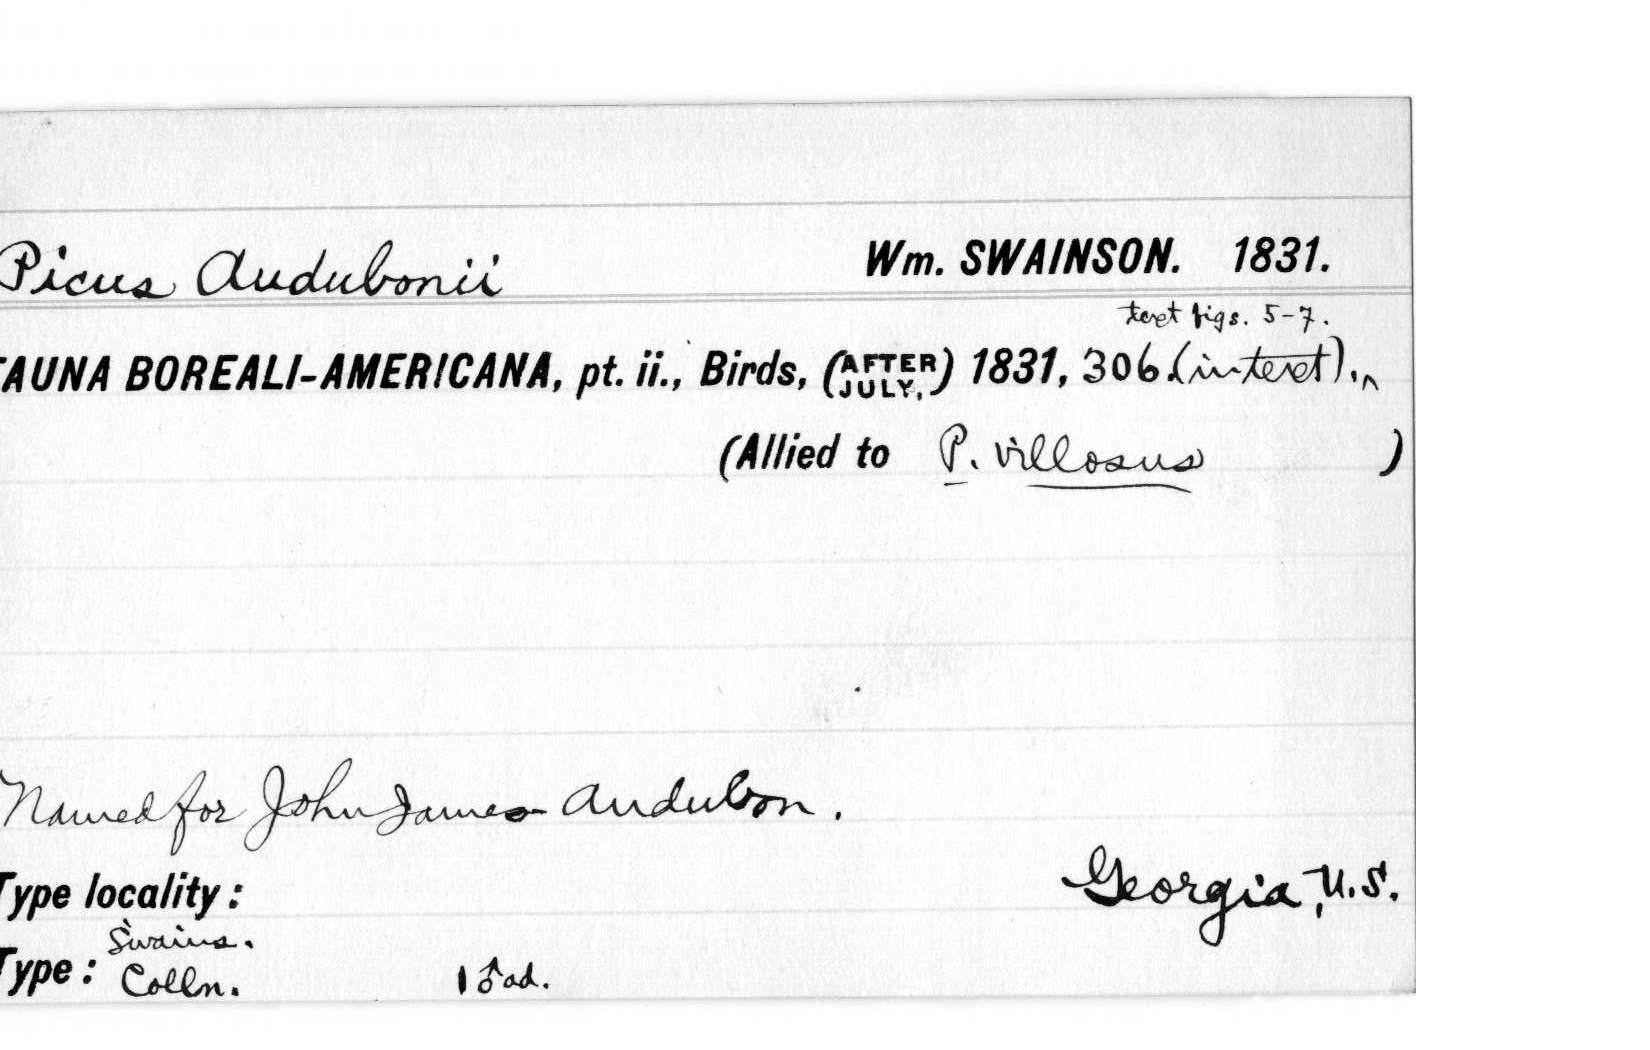 Picus Audubonii Wm. SWAINSON. 1831.
text figs. 5-7.
FAUNA BOREALI-AMERICANA, pt. ii., Birds, (AFTER JULY,) 1831, 306 (in text).^
(Allied to P. villosus )
Named for John James Audubon.
Georgia, U.S.
Type locality:
Swains.
Type: Colln. 1 ♂ ad.